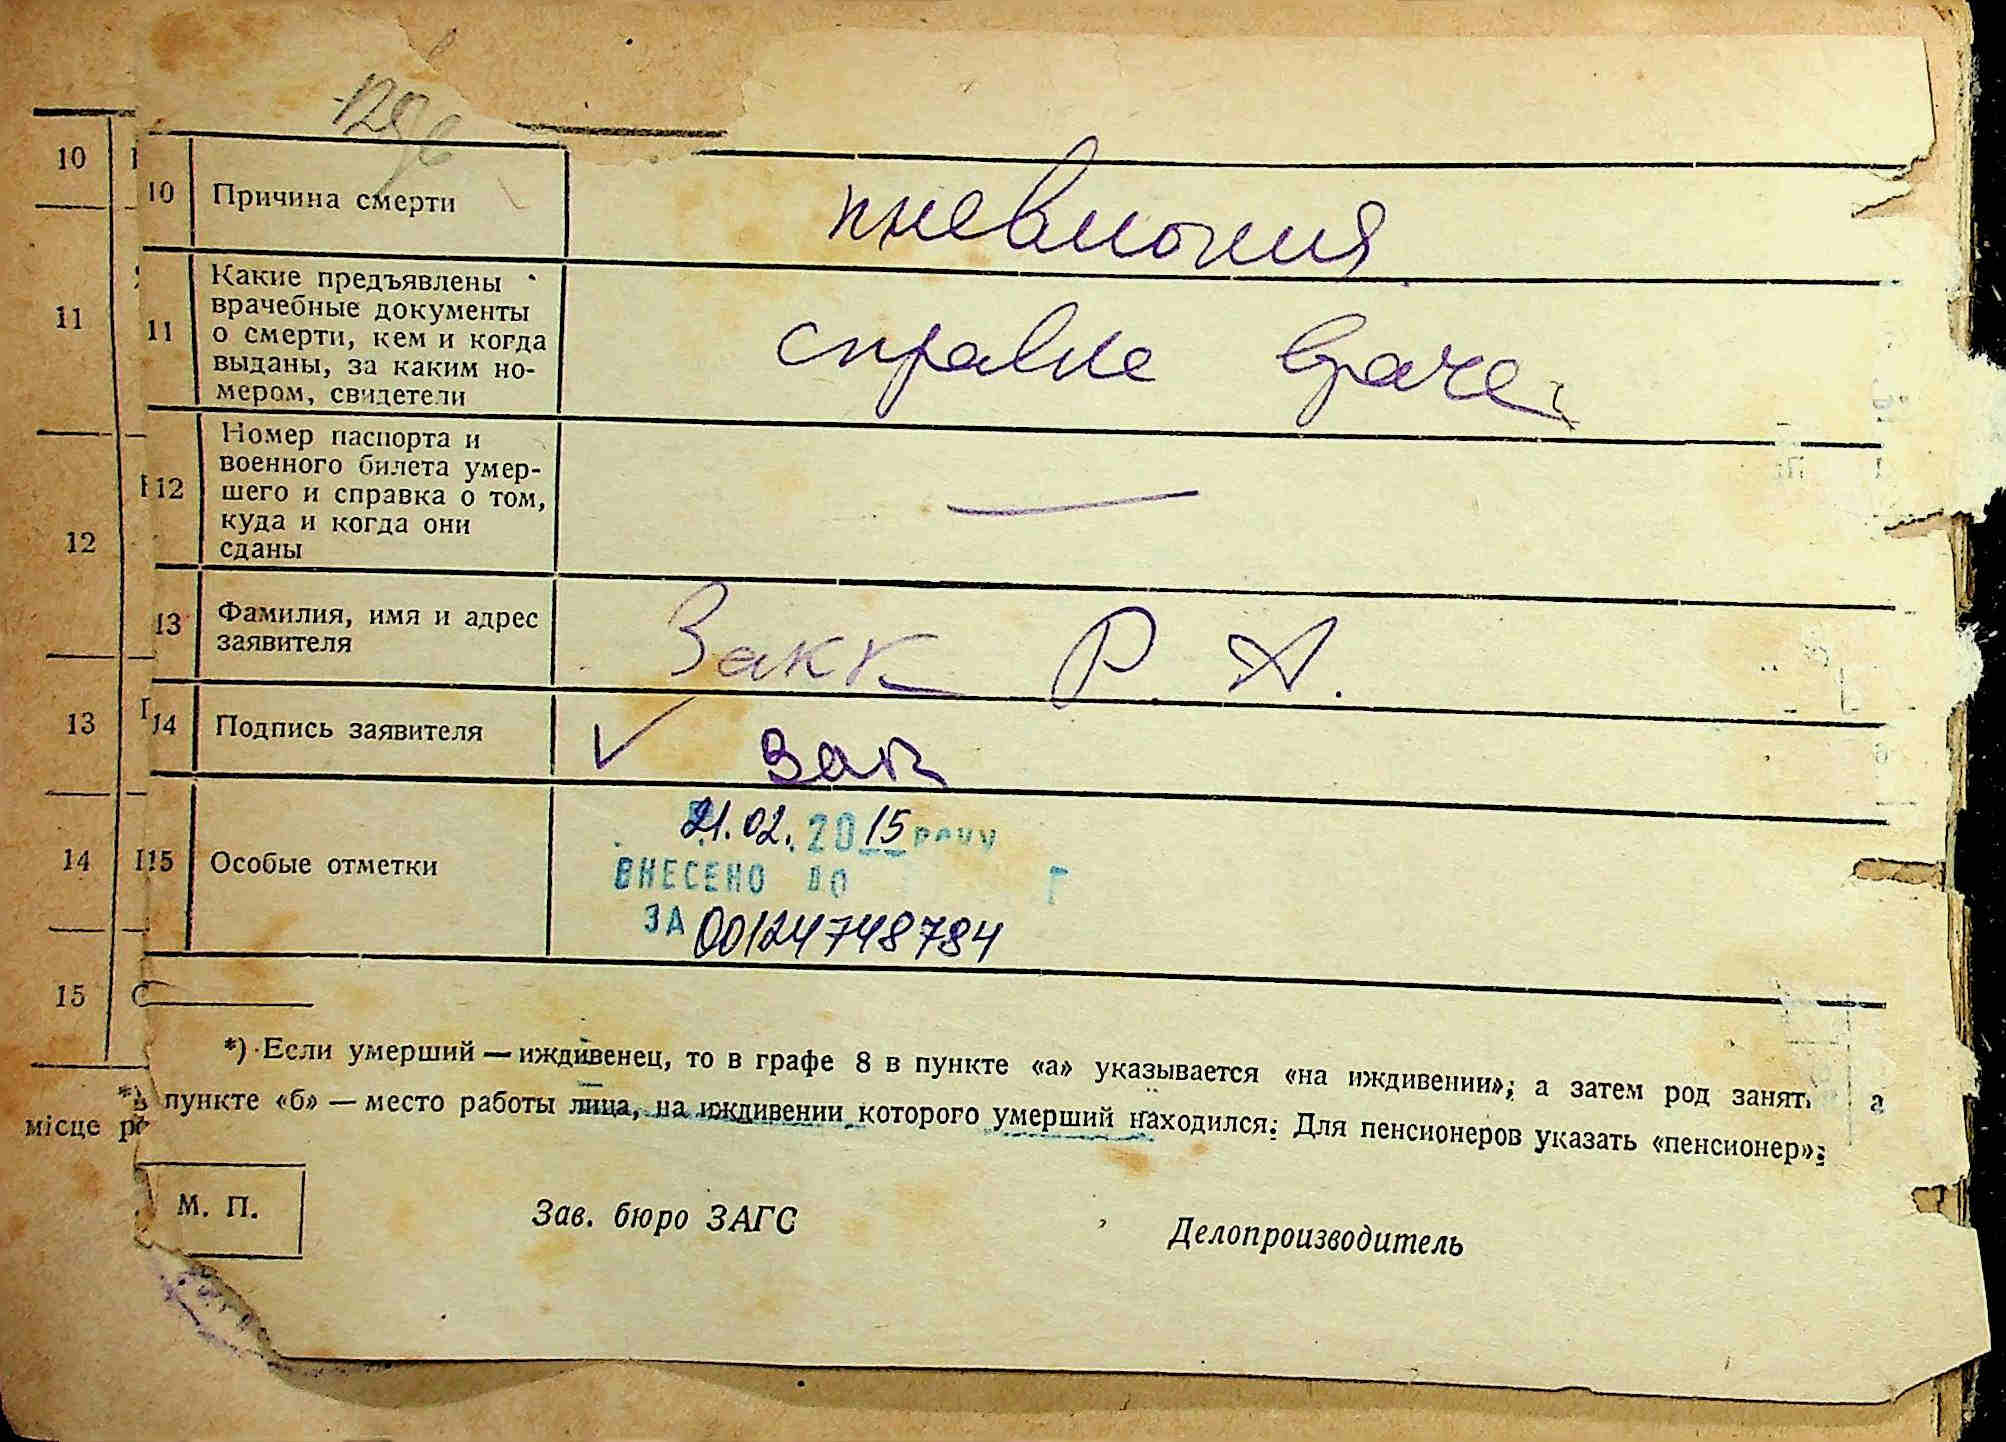 10 Причина смерти пневмония
11 Какие предъявлены
врачебные документы
о смерти, кем и когда
выданы, за каким но-
мером, свидетели
справке враче
12 Номер паспорта и
военного билета умер-
шего и справка о том,
куда и когда они
сданы
—
13 Фамилия, имя и адрес
заявителя
Закк Р. А.
14 Подпись заявителя
Зак
15 Особые отметки
21.02.2015 року
ВНЕСЕНО ДО Г
ЗА 00124748784
*) Если умерший — иждивенец, то в графе 8 в пункте «а» указывается «на иждивении»; а затем род занят
в пункте «б» — место работы лица, на иждивении которого умерший находился: Для пенсионеров указать «пенсионер»;
М. П.
Зав. бюро ЗАГС
Делопроизводитель
10
11
12
13
14
15
місце